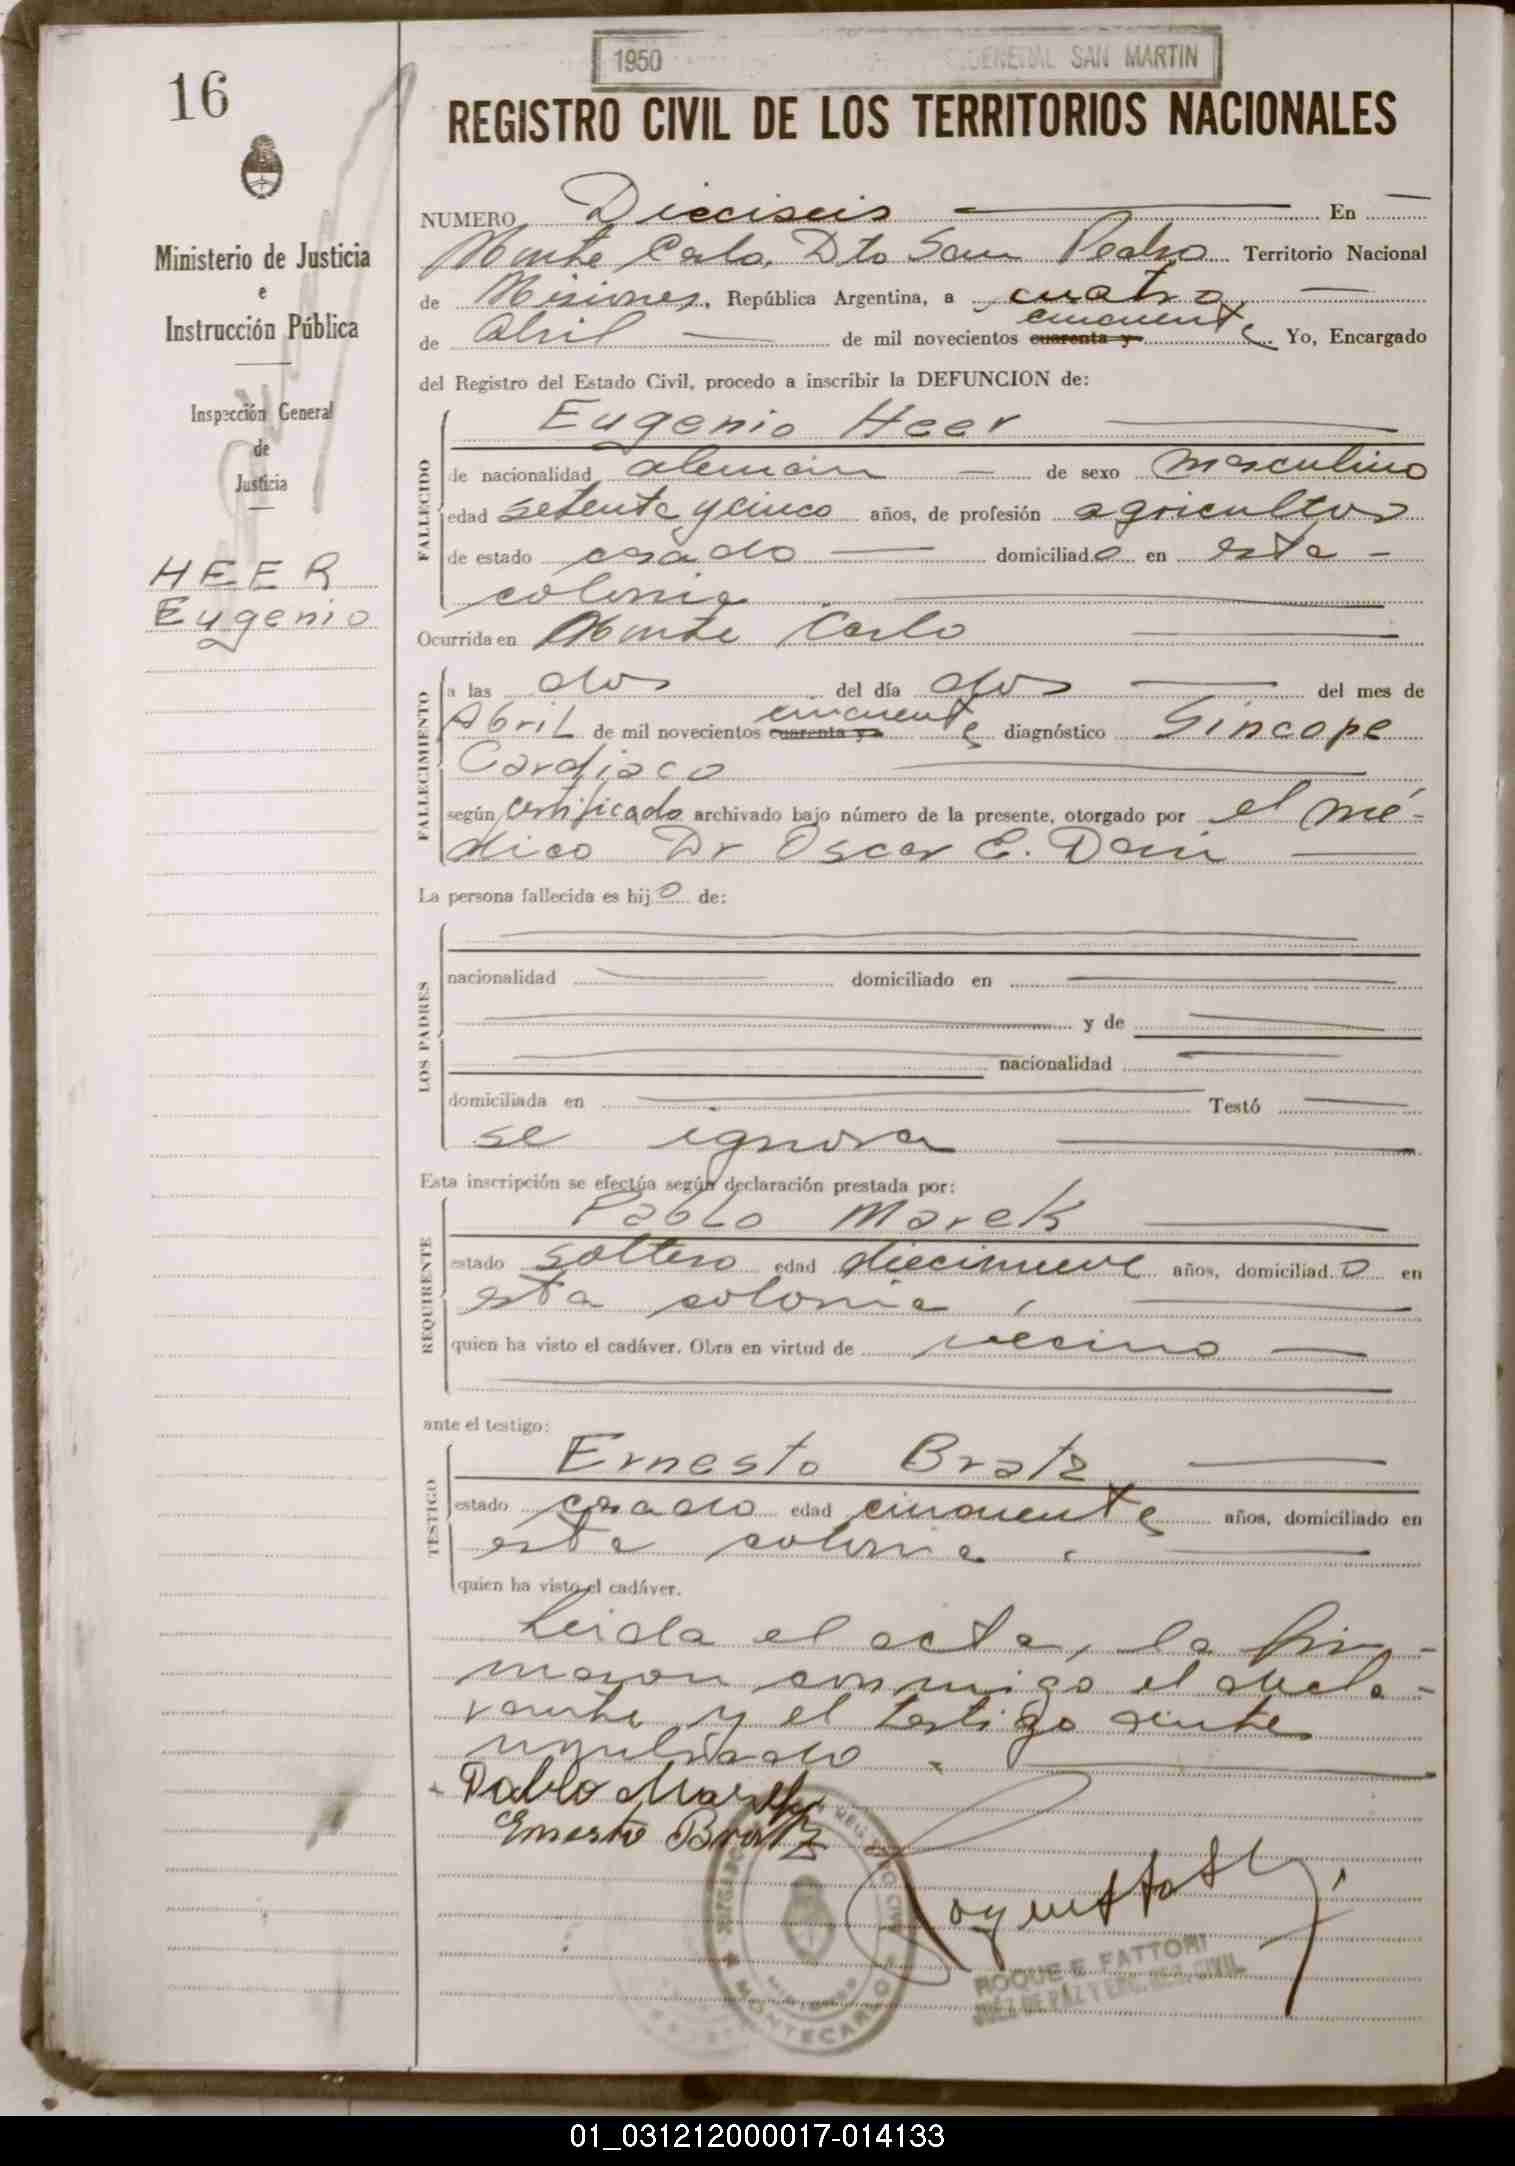 1950 GENERAL SAN MARTIN
16
REGISTRO CIVIL DE LOS TERRITORIOS NACIONALES
Ministerio de Justicia
e
Instrucción Pública
Inspección General
de
Justicia
HEER
Eugenio
NUMERO Dieciseis En
Monte Carlo, Dto San Pedro Territorio Nacional
de Misiones, República Argentina, a cuatro
de abril de mil novecientos cuarenta y cincuenta Yo, Encargado
del Registro del Estado Civil, procedo a inscribir la DEFUNCION de:
FALLECIDO
Eugenio Heer
de nacionalidad alemán de sexo masculino
edad setenta y cinco años, de profesión agricultor
de estado casado domiciliado en esta
colonia
Ocurrida en Monte Carlo
FALLECIMIENTO
a las dos del día dos del mes de
Abril de mil novecientos cuarenta y cincuenta diagnóstico Sincope
Cardiaco
según certificado archivado bajo número de la presente, otorgado por el mé-
dico Dr Oscar E.
La persona fallecida es hijo de:
LOS PADRES
nacionalidad domiciliado en
y de
nacionalidad
domiciliada en Testó
se ignora
Esta inscripción se efectúa según declaración prestada por:
REQUIRENTE
Pablo Marek
estado soltero edad diecinueve años, domiciliado en
esta colonia,
quien ha visto el cadáver. Obra en virtud de vecino
ante el testigo:
TESTIGO
Ernesto Bratz
estado casado edad cincuenta años, domiciliado en
esta colonia
quien ha visto el cadáver.
Leida el acta, la fir-
maron conmigo el decla-
rante y el testigo ante
Pablo Marek
Ernesto Bratz
MONTECARLO
ROQUE E FATTORI
JUEZ DE PAZ Y ENC. REG. CIVIL
01_031212000017-014133